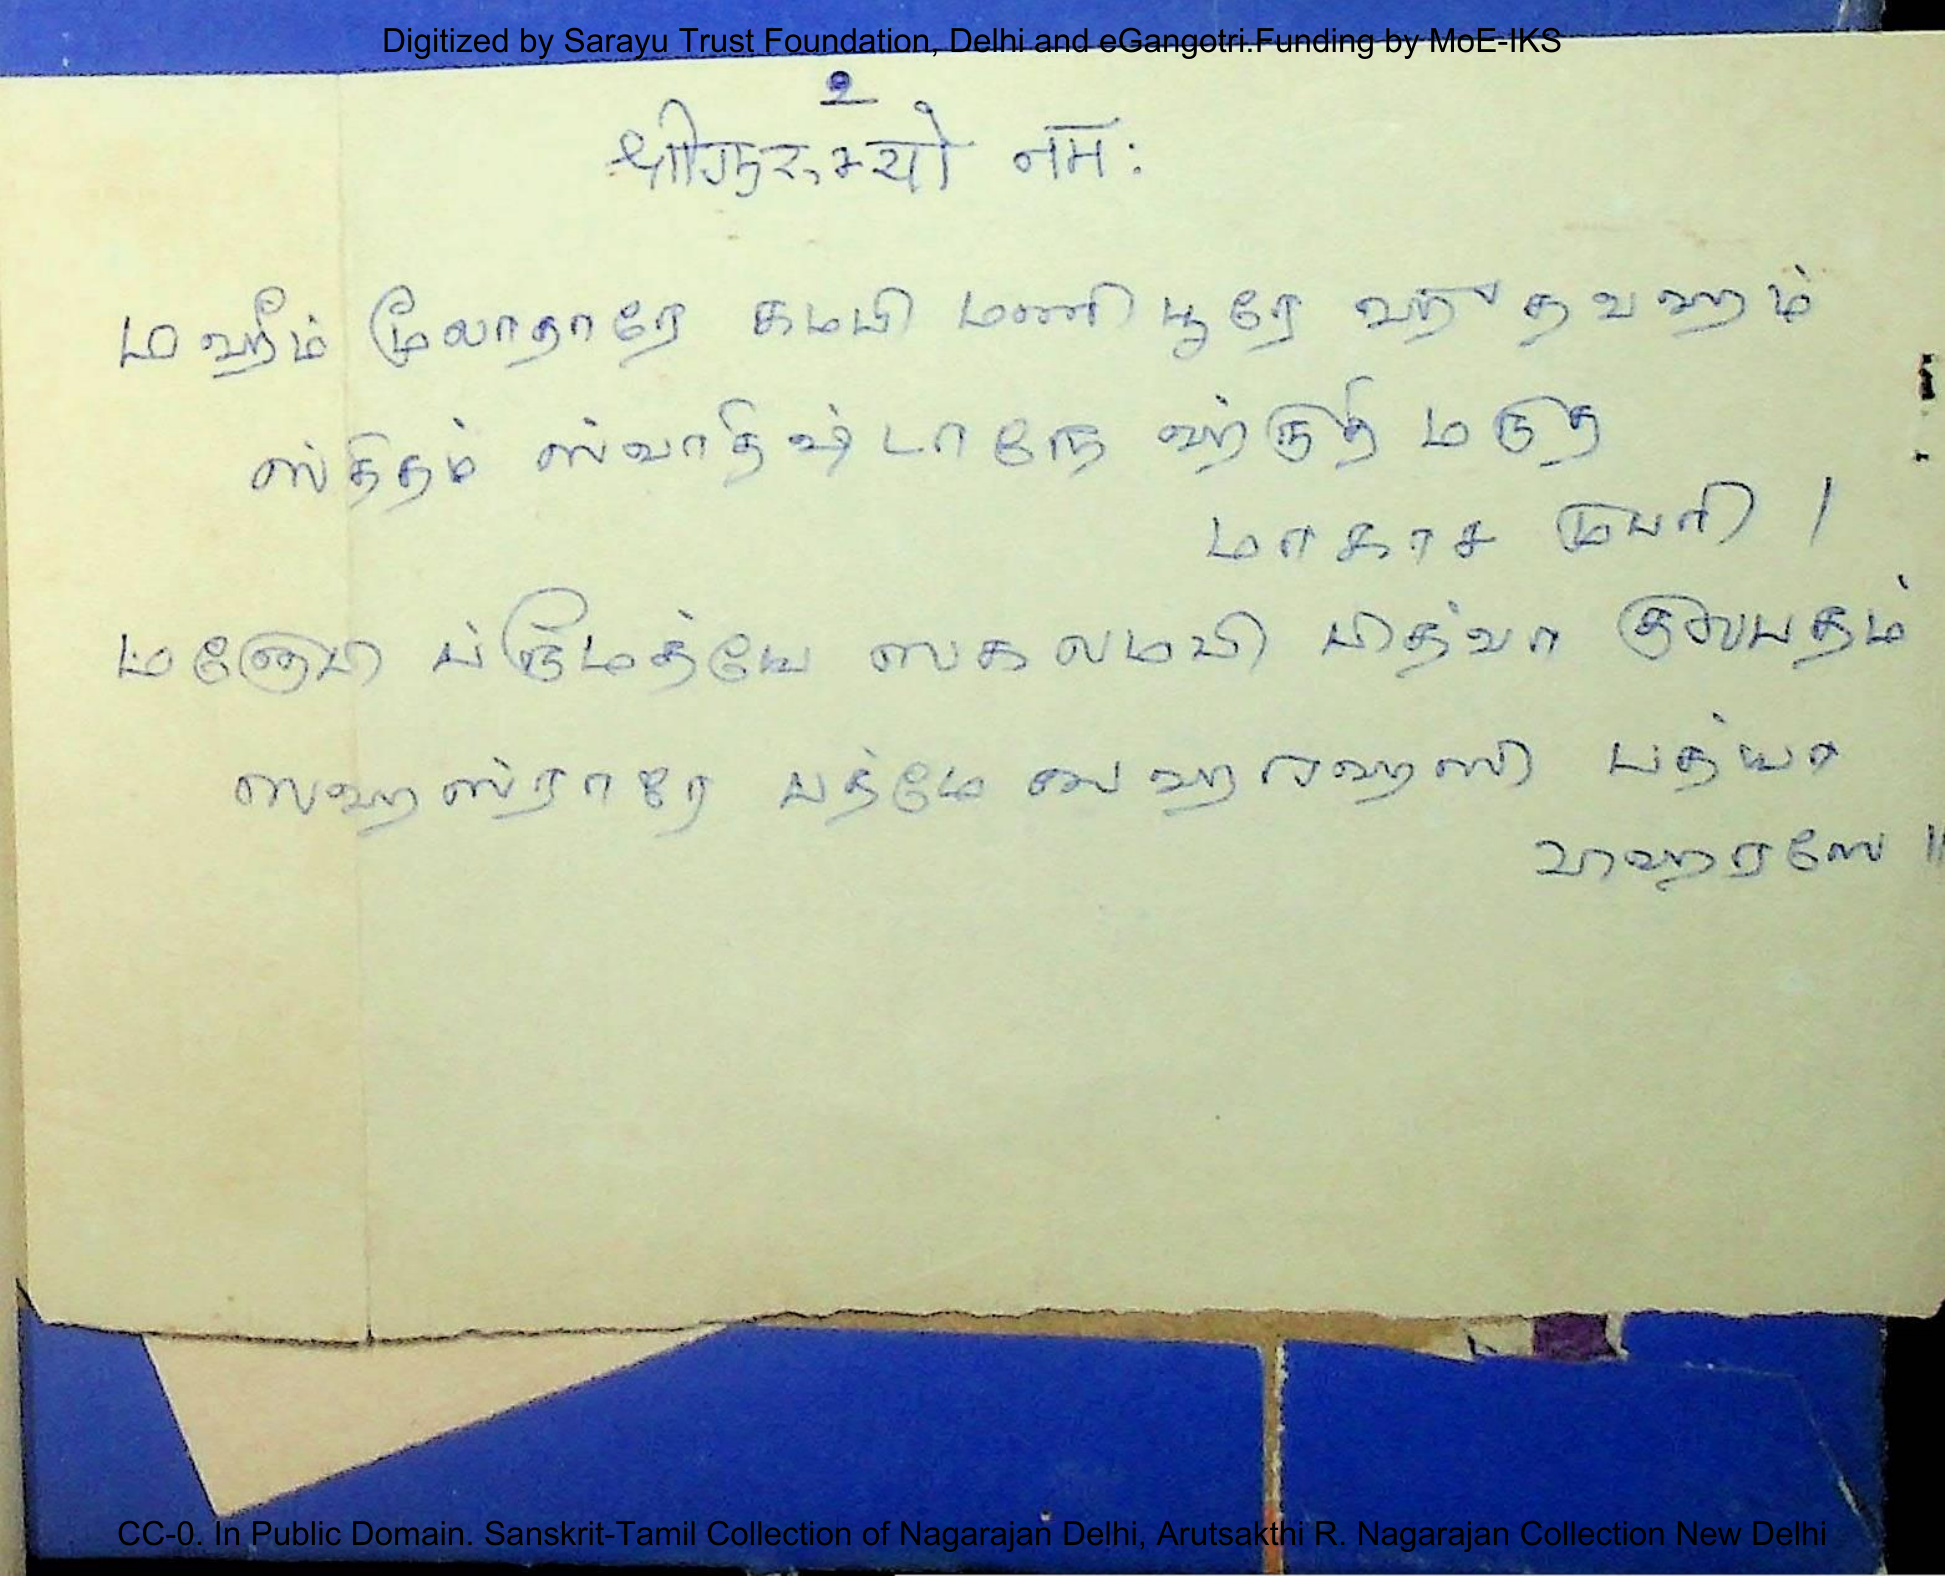 Digitized by Sarayu Trust Foundation, Delhi and eGangotri.Funding by MoE-IKS
உ
श्रीगुरुभ्यो नमः
மஹீம் மூலாதாரே கமபி மணிபூரே ஹுதவஹம்
ஸ்திதம் ஸ்வாதிஷ்டாநே ஹ்ருதி மருத
மாகாச முபரி |
மநோபி ப்ரூமத்யே ஸகலமபி பித்வா குலபதம்
ஸஹஸ்ராரே பத்மே ஸஹரஹஸி பத்யா
விஹரஸே ||
CC-0. In Public Domain. Sanskrit-Tamil Collection of Nagarajan Delhi, Arutsakthi R. Nagarajan Collection New Delhi